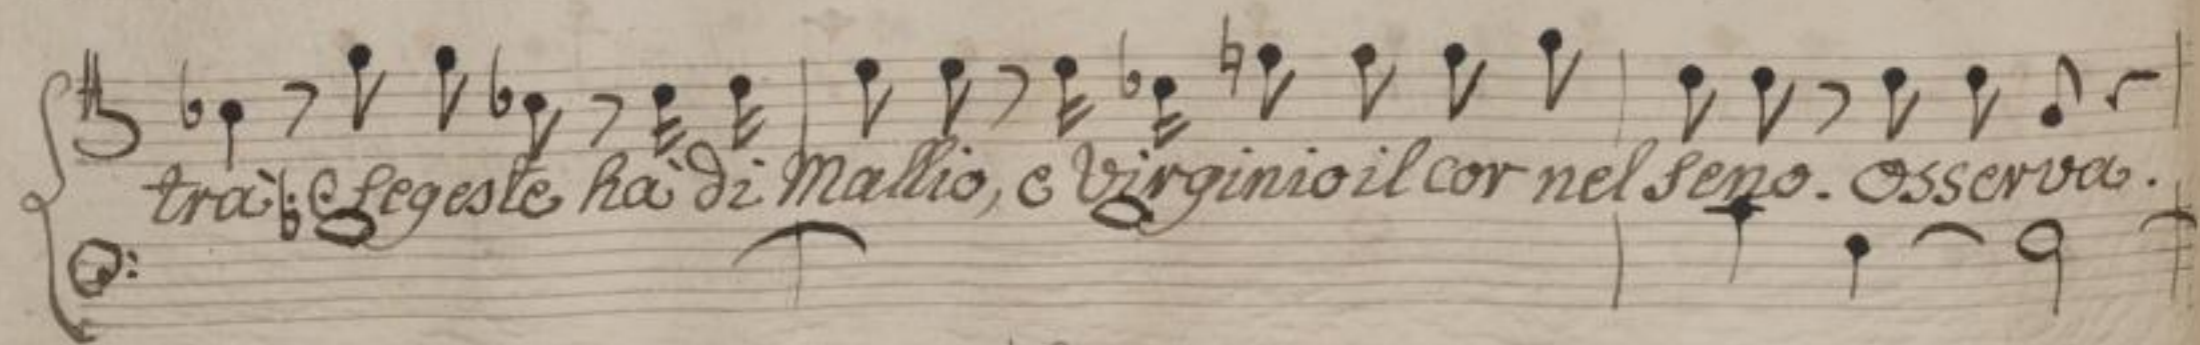 trà: e segeste ha' di Mallio, e Virginio il cor nel seno. Osserva.